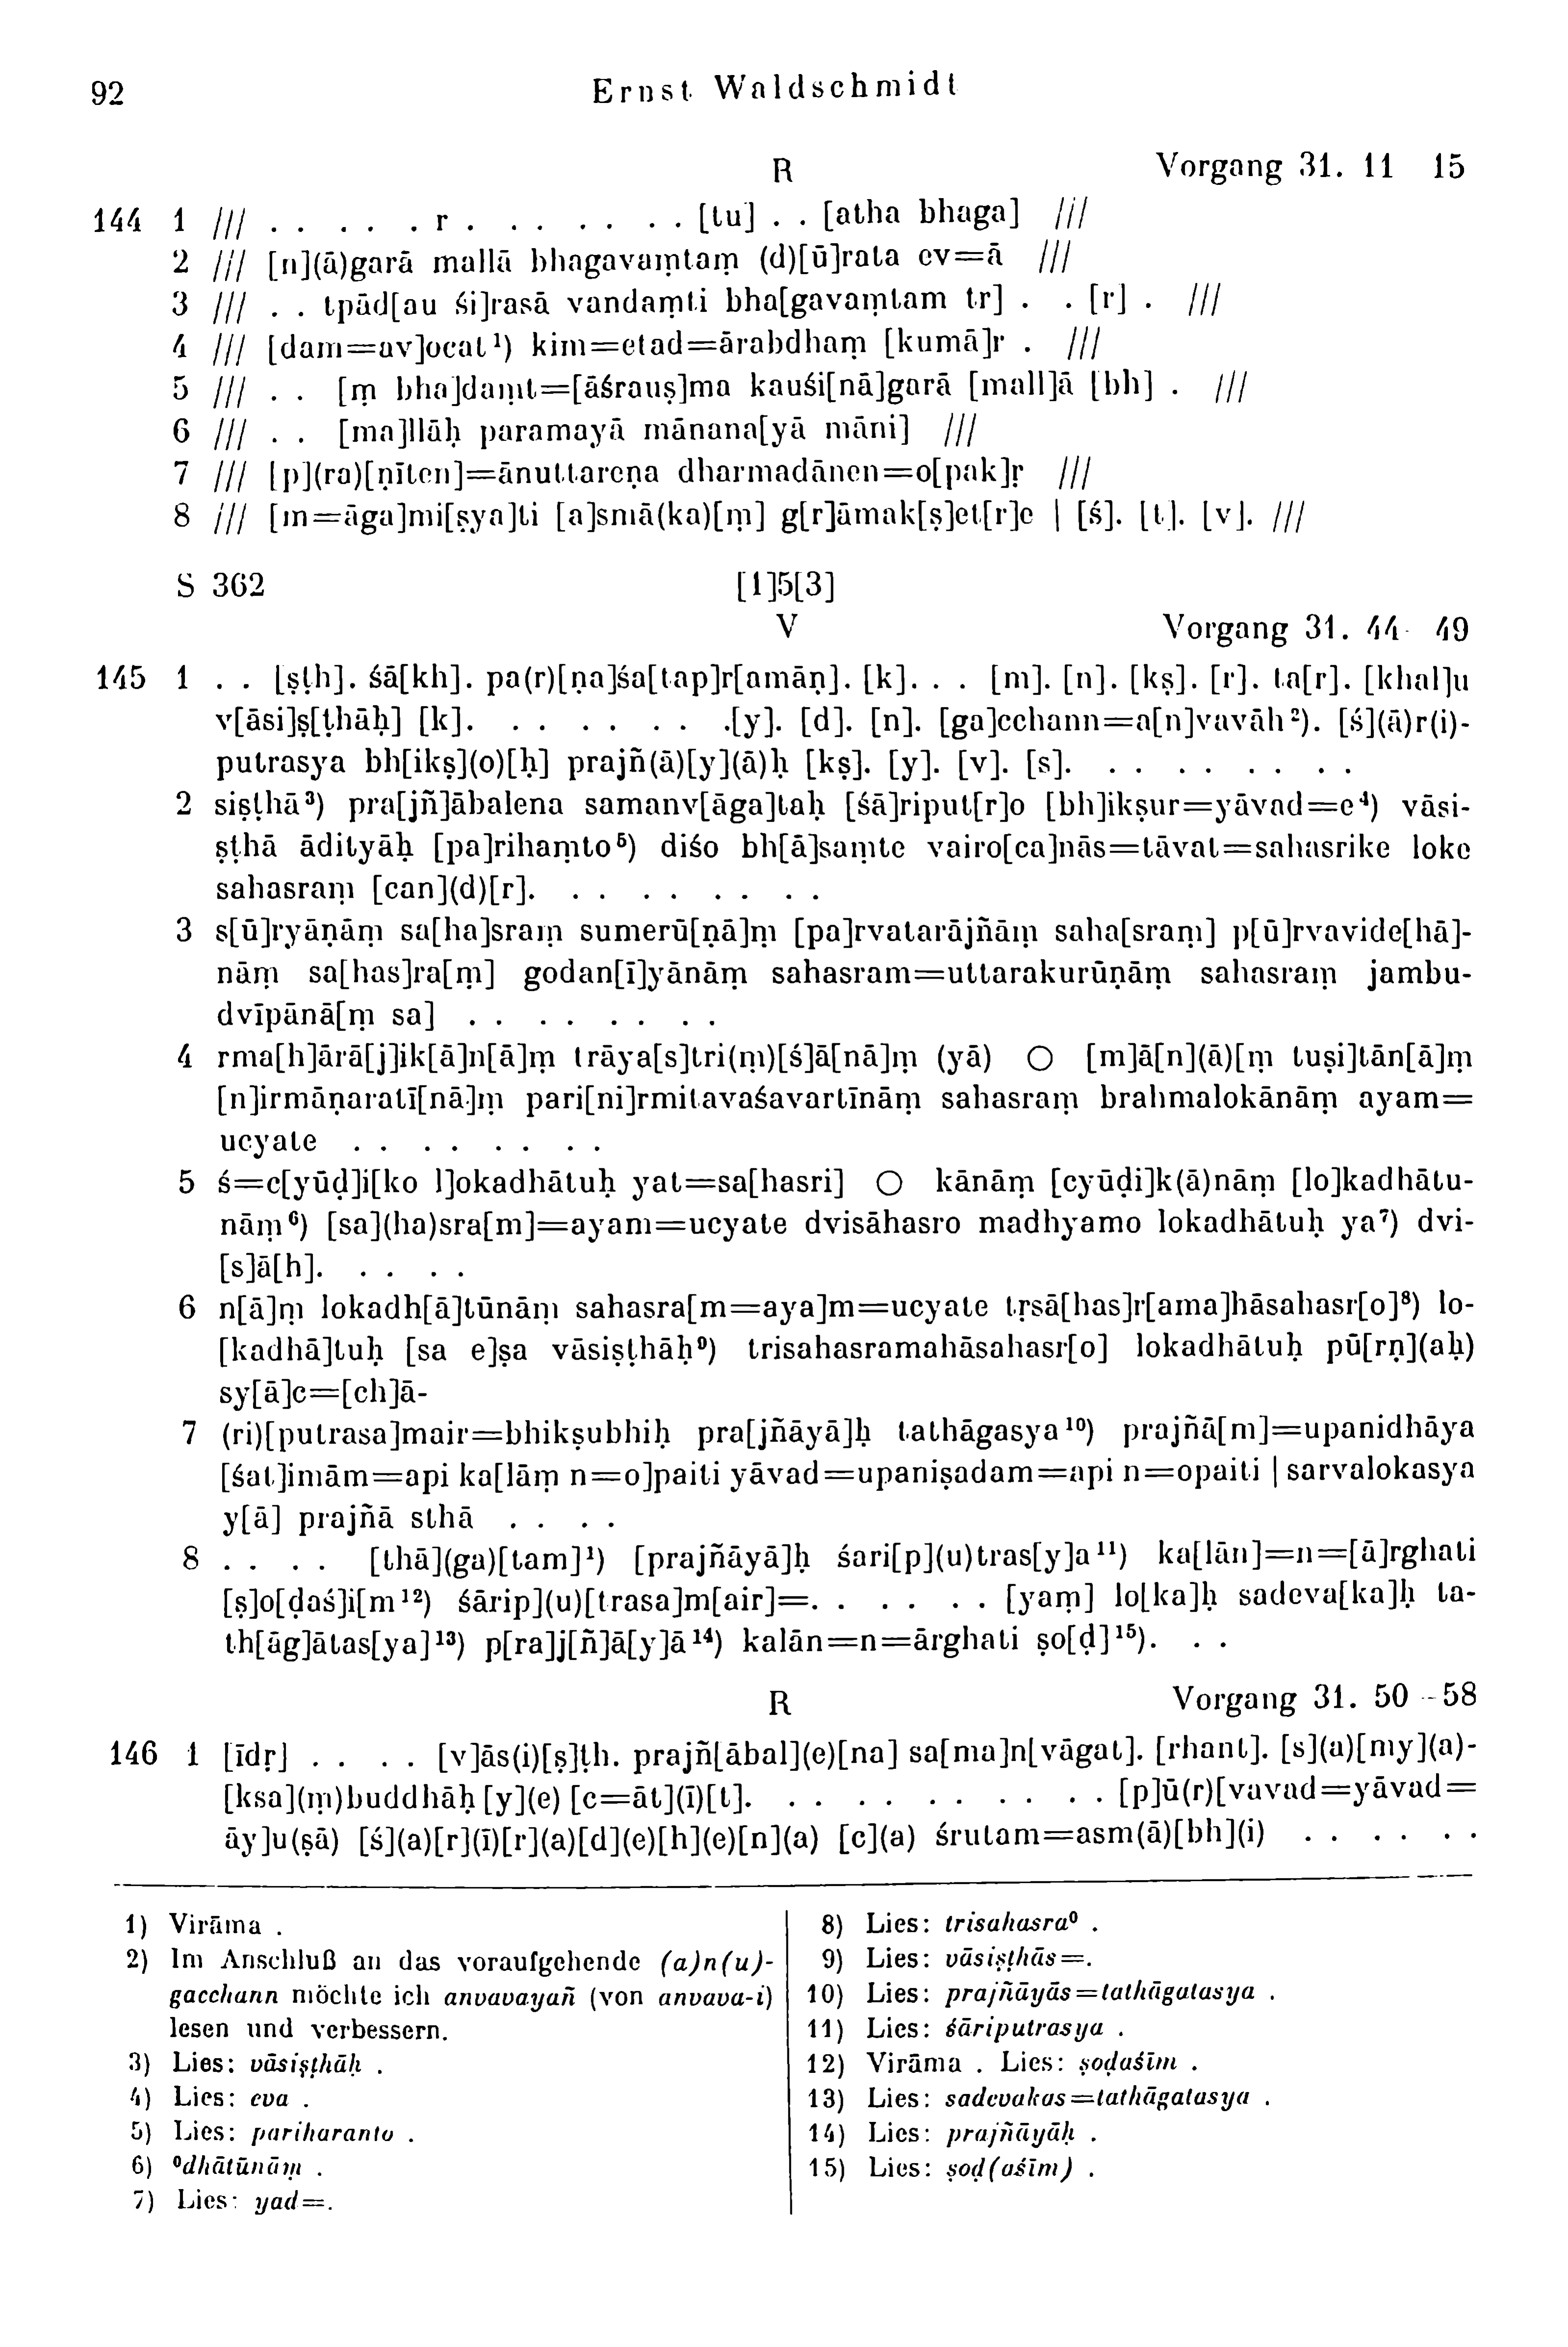 92 Ernst Waldschmidt
R Vorgang 31. 11 15
144 1 /// . . . . . r . . . . . . . . [tu] . . [atha bhaga] ///
2 /// [n](ā)garā mallā bhagavaṃtaṃ (d)[ū]rata ev=ā ///
3 /// . . tpād[au śi]rasā vandaṃti bha[gavaṃtam tr] . . [r] . ///
4 /// [dam=av]ocat¹) kim=etad=ārabdhaṃ [kumā]r . ///
5 /// . . [ṃ bha]daṃt=[āśrauṣ]ma kauśi[nā]garā [mall]ā [bh] . ///
6 /// . . [ma]llāḥ paramayā mānana[yā māni] ///
7 /// [p](ra)[ṇīten]=ānuttareṇa dharmadānen=o[pak]ṛ ///
8 /// [m=āga]mi[ṣya]ti [a]smā(ka)[ṃ] g[r]āmak[ṣ]et[r]e | [ś]. [t]. [v]. ///
S 362 [1]5[3]
V Vorgang 31. 44- 49
145 1 . . [ṣṭh]. śā[kh]. pa(r)[ṇa]śa[tap]r[amāṇ]. [k]. . . [m]. [n]. [kṣ]. [r]. ta[r]. [khal]u
v[āsi]ṣ[ṭhāḥ] [k]. . . . . . . . .[y]. [d]. [n]. [ga]cchann=a[n]vavāh²). [ś](ā)r(i)-
putrasya bh[ikṣ](o)[ḥ] prajñ(ā)[y](ā)ḥ [kṣ]. [y]. [v]. [s]. . . . . . . . . .
2 siṣṭhā³) pra[jñ]ābalena samanv[āga]taḥ [śā]riput[r]o [bh]ikṣur=yāvad=e⁴) vāsi-
ṣṭhā ādityāḥ [pa]rihaṃto⁵) diśo bh[ā]saṃte vairo[ca]nās=tāvat=sahasrike loke
sahasraṃ [can](d)[r]. . . . . . . . .
3 s[ū]ryāṇāṃ sa[ha]sraṃ sumerū[ṇā]ṃ [pa]rvatarājñāṃ saha[sraṃ] p[ū]rvavide[hā]-
nāṃ sa[has]ra[ṃ] godan[ī]yānāṃ sahasram=uttarakurūṇāṃ sahasraṃ jambu-
dvīpānā[ṃ sa] . . . . . . . .
4 rma[h]ārā[j]ik[ā]n[ā]ṃ trāya[s]tri(ṃ)[ś]ā[nā]ṃ (yā) ○ [m]ā[n](ā)[ṃ tuṣi]tān[ā]ṃ
[n]irmāṇaratī[nā]ṃ pari[ni]rmitavaśavartīnāṃ sahasraṃ brahmalokānāṃ ayam=
ucyate . . . . . . . .
5 ś=c[yūḍ]i[ko l]okadhātuḥ yat=sa[hasri] ○ kānāṃ [cyūḍi]k(ā)nāṃ [lo]kadhātu-
nāṃ⁶) [sa](ha)sra[m]=ayam=ucyate dvisāhasro madhyamo lokadhātuḥ ya⁷) dvi-
[s]ā[h]. . . . .
6 n[ā]ṃ lokadh[ā]tūnāṃ sahasra[m=aya]m=ucyate tṛsā[has]r[ama]hāsahasr[o]⁸) lo-
[kadhā]tuḥ [sa e]ṣa vāsiṣṭhāḥ⁹) trisahasramahāsahasr[o] lokadhātuḥ pū[rṇ](aḥ)
sy[ā]c=[ch]ā-
7 (ri)[putrasa]mair=bhikṣubhiḥ pra[jñāyā]ḥ tathāgasya¹⁰) prajñā[m]=upanidhāya
[śat]imām=api ka[lāṃ n=o]paiti yāvad=upaniṣadam=api n=opaiti | sarvalokasya
y[ā] prajñā sthā . . . .
8 . . . . [thā](ga)[tam]¹) [prajñāyā]ḥ śari[p](u)tras[y]a¹¹) ka[lān]=n=[ā]rghati
[ṣ]o[ḍaś]i[m¹²) śārip](u)[trasa]m[air]=. . . . . . . [yaṃ] lo[ka]ḥ sadeva[ka]ḥ ta-
th[āg]ātas[ya]¹³) p[ra]j[ñ]ā[y]ā¹⁴) kalān=n=ārghati ṣo[ḍ]¹⁵). . .
R Vorgang 31. 50 -58
146 1 [īdṛ] . . . . [v]ās(i)[ṣ]ṭh. prajñ[ābal](e)[na] sa[ma]n[vāgat]. [rhant]. [s](a)[my](a)-
[ksa](ṃ)buddhāḥ [y](e) [c=āt](ī)[t]. . . . . . . . . . . [p]ū(r)[vavad=yāvad=
āy]u(ṣā) [ś](a)[r](ī)[r](a)[d](e)[h](e)[n](a) [c](a) śrutam=asm(ā)[bh](i) . . . . . .
1) Virāma .
2) Im Anschluß an das voraufgehende (a)n(u)-
gacchann möchte ich anvavayañ (von anvava-i)
lesen und verbessern.
3) Lies: vāsiṣṭhāḥ .
4) Lies: eva .
5) Lies: pariharanto .
6) ⁰dhātūnāṃ .
7) Lies: yad=.
8) Lies: trisahasra⁰ .
9) Lies: vāsiṣṭhās=.
10) Lies: prajñāyās=tathāgatasya .
11) Lies: śāriputrasya .
12) Virāma . Lies: ṣoḍaśīm .
13) Lies: sadevakas=tathāgatasya .
14) Lies: prajñāyāḥ .
15) Lies: ṣoḍ(aśīm) .